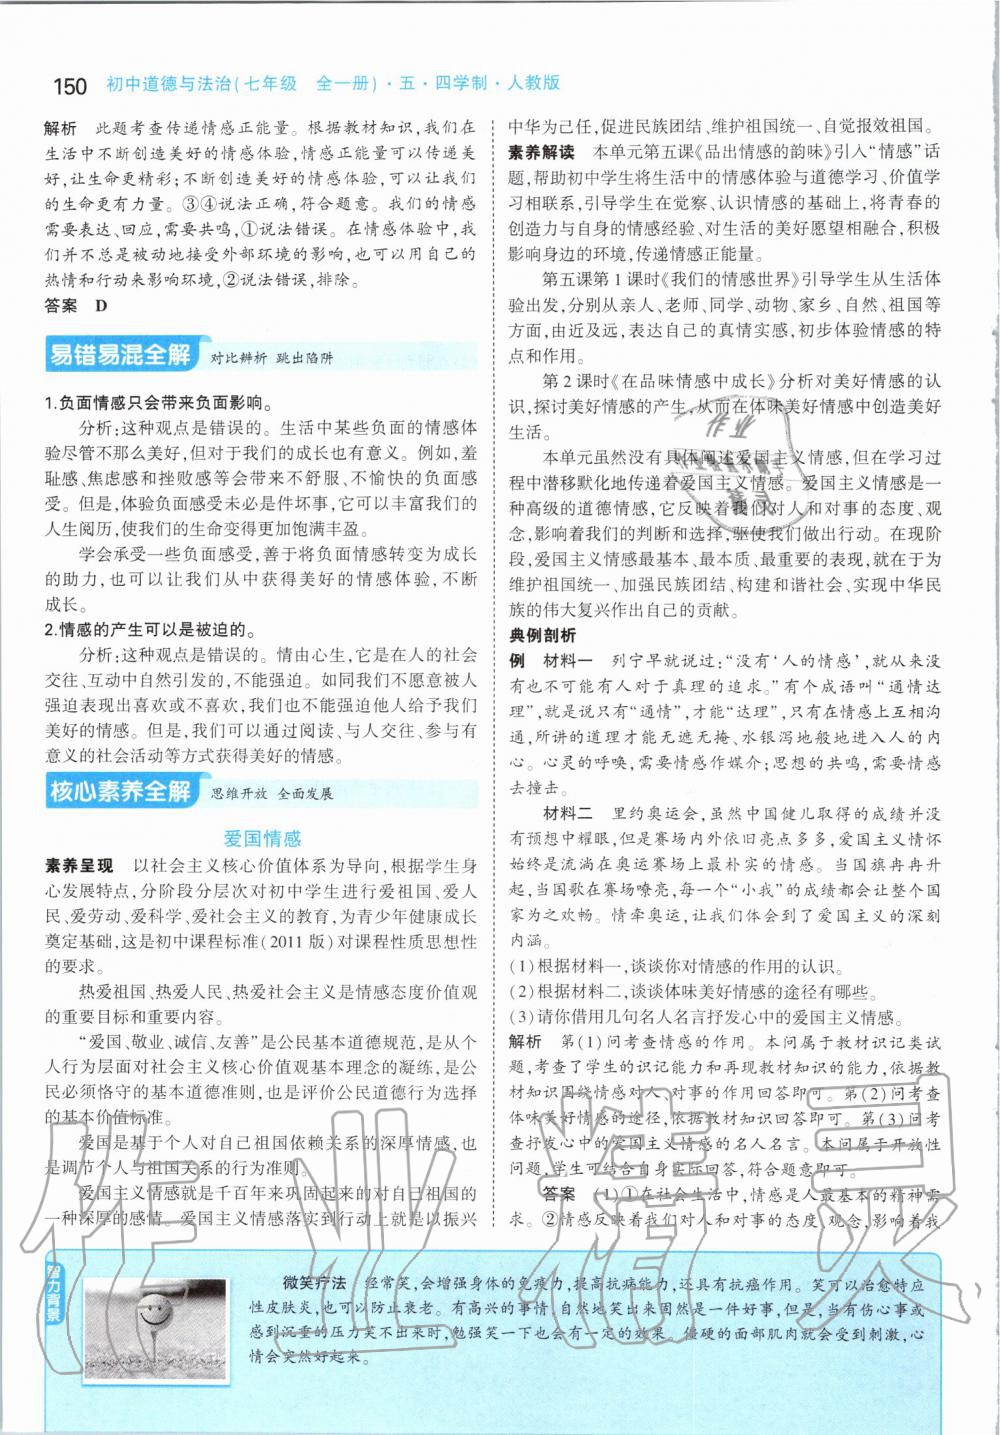 150 初中道德与法治(七年级 全一册)·五·四学制·人教版
解析 此题考查传递情感正能量。根据教材知识,我们在
生活中不断创造美好的情感体验,情感正能量可以传递美
好,让生命更精彩;不断创造美好的情感体验,可以让我们
的生命更有力量。③④说法正确,符合题意。我们的情感
需要表达、回应,需要共鸣,①说法错误。在情感体验中,我
们并不总是被动地接受外部环境的影响,也可以用自己的
热情和行动来影响环境,②说法错误,排除。
答案 D
易错易混全解 对比辨析 跳出陷阱
1.负面情感只会带来负面影响。
分析:这种观点是错误的。生活中某些负面的情感体
验尽管不那么美好,但对于我们的成长也有意义。例如,羞
耻感、焦虑感和挫败感等会带来不舒服、不愉快的负面感
受。但是,体验负面感受未必是件坏事,它可以丰富我们的
人生阅历,使我们的生命变得更加饱满丰盈。
学会承受一些负面感受,善于将负面情感转变为成长
的助力,也可以让我们从中获得美好的情感体验,不断
成长。
2.情感的产生可以是被迫的。
分析:这种观点是错误的。情由心生,它是在人的社会
交往、互动中自然引发的,不能强迫。如同我们不愿意被人
强迫表现出喜欢或不喜欢,我们也不能强迫他人给予我们
美好的情感。但是,我们可以通过阅读、与人交往、参与有
意义的社会活动等方式获得美好的情感。
核心素养全解 思维开放 全面发展
爱国情感
素养呈现 以社会主义核心价值体系为导向,根据学生身
心发展特点,分阶段分层次对初中学生进行爱祖国、爱人
民、爱劳动、爱科学、爱社会主义的教育,为青少年健康成长
奠定基础,这是初中课程标准(2011版)对课程性质思想性
的要求。
热爱祖国、热爱人民、热爱社会主义是情感态度价值观
的重要目标和重要内容。
“爱国、敬业、诚信、友善”是公民基本道德规范,是从个
人行为层面对社会主义核心价值观基本理念的凝练,是公
民必须恪守的基本道德准则,也是评价公民道德行为选择
的基本价值标准。
爱国是基于个人对自己祖国依赖关系的深厚情感,也
是调节个人与祖国关系的行为准则。
爱国主义情感就是千百年来巩固起来的对自己祖国的
一种深厚的感情。爱国主义情感落实到行动上就是以振兴
中华为己任,促进民族团结、维护祖国统一、自觉报效祖国。
素养解读 本单元第五课《品出情感的韵味》引入“情感”话
题,帮助初中学生将生活中的情感体验与道德学习、价值学
习相联系,引导学生在觉察、认识情感的基础上,将青春的
创造力与自身的情感经验、对生活的美好愿望相融合,积极
影响身边的环境,传递情感正能量。
第五课第1课时《我们的情感世界》引导学生从生活体
验出发,分别从亲人、老师、同学、动物、家乡、自然、祖国等
方面,由近及远,表达自己的真情实感,初步体验情感的特
点和作用。
第2课时《在品味情感中成长》分析对美好情感的认
识,探讨美好情感的产生,从而在体味美好情感中创造美好
生活。
本单元虽然没有具体阐述爱国主义情感,但在学习过
程中潜移默化地传递着爱国主义情感。爱国主义情感是一
种高级的道德情感,它反映着我们对人和对事的态度、观
念,影响着我们的判断和选择,驱使我们做出行动。在现阶
段,爱国主义情感最基本、最本质、最重要的表现,就在于为
维护祖国统一、加强民族团结、构建和谐社会、实现中华民
族的伟大复兴作出自己的贡献。
典例剖析
例 材料一 列宁早就说过:“没有‘人的情感’,就从来没
有也不可能有人对于真理的追求。”有个成语叫“通情达
理”,就是说只有“通情”,才能“达理”,只有在情感上互相沟
通,所讲的道理才能无遮无掩、水银泻地般地进入人的内
心。心灵的呼唤,需要情感作媒介;思想的共鸣,需要情感
去撞击。
材料二 里约奥运会,虽然中国健儿取得的成绩并没
有预想中耀眼,但是赛场内外依旧亮点多多,爱国主义情怀
始终是流淌在奥运赛场上最朴实的情感。当国旗冉冉升
起,当国歌在赛场嘹亮,每一个“小我”的成绩都会让整个国
家为之欢畅。情牵奥运,让我们体会到了爱国主义的深刻
内涵。
(1)根据材料一,谈谈你对情感的作用的认识。
(2)根据材料二,谈谈体味美好情感的途径有哪些。
(3)请你借用几句名人名言抒发心中的爱国主义情感。
解析 第(1)问考查情感的作用。本问属于教材识记类试
题,考查了学生的识记能力和再认再现知识的能力,依据教
材知识围绕情感对人、对事的作用回答即可。第(2)问考查
体味美好情感的途径,依据教材知识回答即可。第(3)问考
查抒发心中的爱国主义情感的名人名言。本问属于开放性
问题,学生可结合自身实际回答,符合题意即可。
答案 (1)①在社会生活中,情感是人最基本的精神需
求。②情感反映着我们对人和对事的态度、观念,影响着我
智力背景
微笑疗法 经常笑,会增强身体的免疫力,提高抗病能力,还具有抗癌作用。笑可以治愈特应
性皮肤炎,也可以防止衰老。有高兴的事情,自然地笑出来固然是一件好事,但是,当有伤心事或
感到沉重的压力笑不出来时,勉强笑一下也会有一定的效果。僵硬的面部肌肉就会受到刺激,心
情会突然好起来。
作业精灵